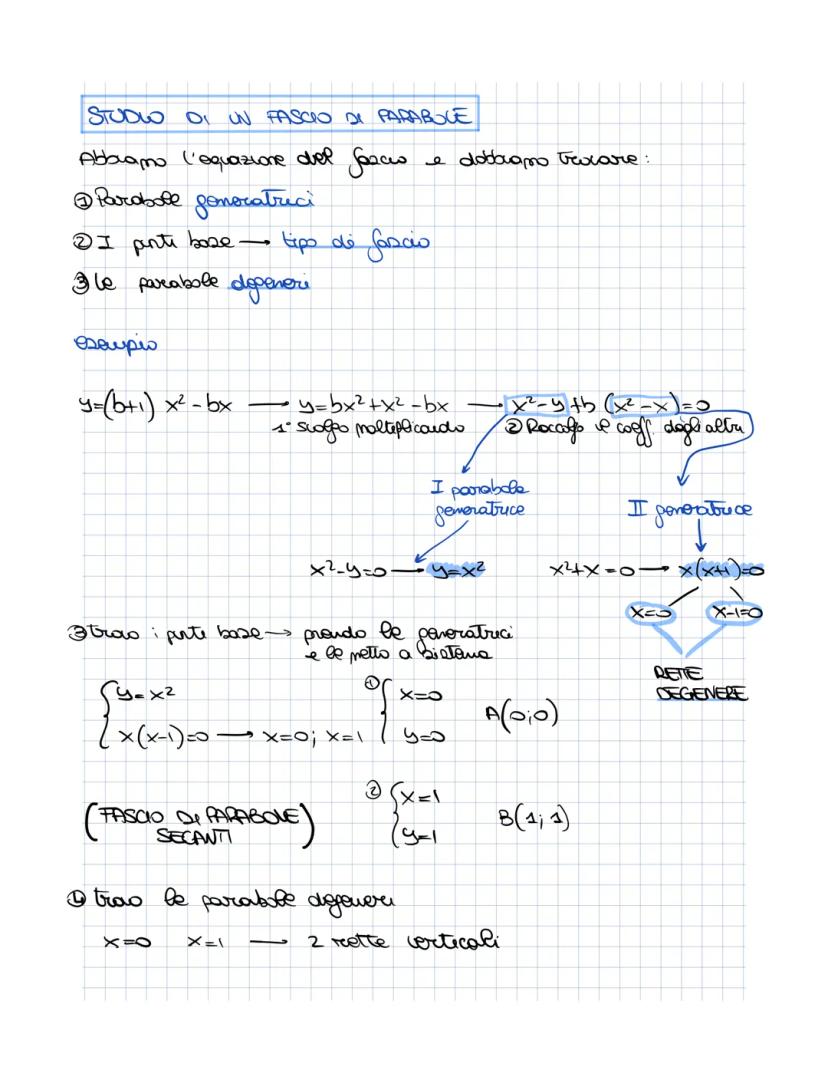 STUDIO DI UN FASCIO DI PARABOLE
Abbiamo l'equazione del fascio e dobbiamo trovare:
① Parabole generatrici
② I punti base → tipo di fascio
③ le parabole degeneri
esempio
y=(b+1) x² - bx → y=bx²+x² -bx → x²-y +b (x²-x)=0
1° sciolgo moltiplicando ② Raccolgo il coeff. dagli altri
I parabola generatrice
II generatrice
x²-y=0 → y=x² x²+x=0 → x(x+1)=0
x=0 x-1=0
RETTE DEGENERE
③ trovo i punti base → prendo le generatrici
e le metto a sistema
{ y=x² ① { x=0 A(0;0)
x(x-1)=0 → x=0; x=1 y=0
② { x=1 B(1;1)
y=1
(FASCIO DI PARABOLE SECANTI)
④ trovo le parabole degeneri
x=0 x=1 → 2 rette verticali